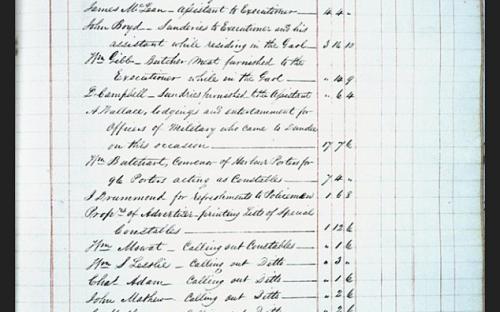 James McLean - Assistant to Executioner 4 4 "
John Boyd - Sundries to Executioner and his
assistant while residing in the Gaol 3 16 10
Wm Gibb - Butcher Meat furnished to the
Executioner while in the Gaol " 14 9
D. Campbell - Sundries furnished to the Assistant " 6 4
A Wallace, lodgings and entertainment for
Officers of Military who came to Dundee
on this occasion 17 7 6
Wm Convener of Harbour Porters for
96 Porters acting as Constables 7 4 "
J Drummond for refreshments to Policemen 1 6 8
Proprs of Advertiser - printing Lists of Special
Constables 1 12 6
Wm Mowat - Calling out Constables " 1 6
Wm S Leslie - Calling out Ditto " 3 "
Chas Adam - Calling out Ditto " 1 6
John Mathew Calling out Ditto " 2 6
Calling out Ditto " 2 6